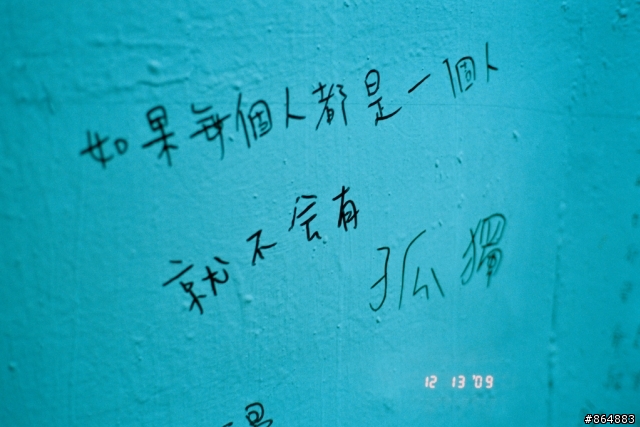 如果每個人都是一個人
就不会有
孤獨
12 13 '09
#864883